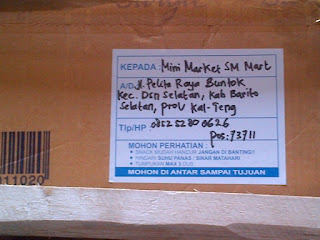 KEPADA : Mini Market SM Mart
A/D Jl. Pelita Raya Buntok
Kec. Dsn Selatan, Kab Barito
Selatan, prov Kal-Teng
Tlp/HP 0852 5280 0626
pos: 73711
MOHON PERHATIAN :
• SNACK MUDAH HANCUR JANGAN DI BANTING!!
• HINDARI SUHU PANAS / SINAR MATAHARI
• TUMPUKAN MAX 5 DUS
MOHON DI ANTAR SAMPAI TUJUAN
11020